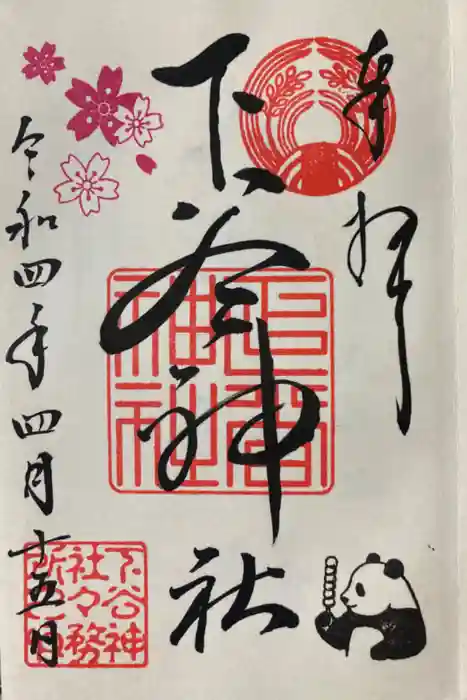 奉拝
下谷神社
令和四年四月十五日
下谷神
社々務
所之印